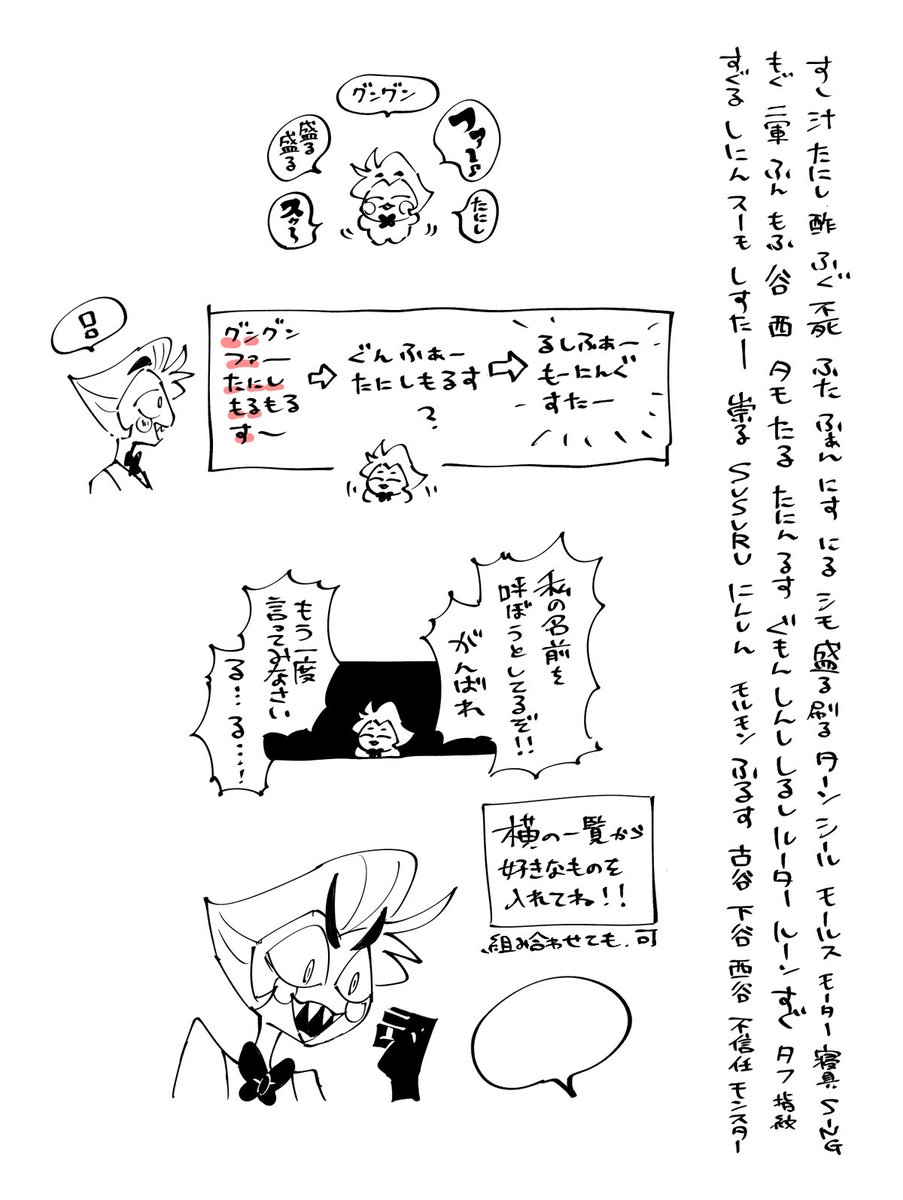 すし 汁 たにし 酢 ふぐ 不死 ふた ふぁん にす にる シモ 盛る 刷る ターン シール モールス モーター 寝具 SING
もぐ 二軍 ふん もふ 谷 西 タモ たる たにん るす ぐもん しんし しるし ルーター ルーン すぐ タフ 指紋
すぐる しにん スーモ しすたー 崇る SUSURU にんしん モルモン ふるす 古谷 下谷 西谷 不信任 モンスター
グングン
ファー♪
盛る
盛る
たにし
スゥ〜
グングン
ファー
たにし
もるもる
す〜
⇨
ぐんふぁー
たにしもるす
?
⇨
るしふぁー
もーにんぐ
すたー
私の名前を
呼ぼうとしてるぞ!!
がんばれ
もう一度
言ってみなさい
る…る…!
横の一覧から
好きなものを
入れてね!!
組み合わせても.可